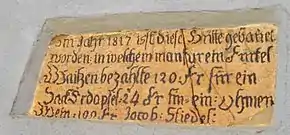 Im Jahr 1817 ist diese Hütte gebauet
worden: in welchem man für ein Fürtel
Waitzen bezahlte 120 Fr für ein
Sack Erdöpfel 24 Fr für ein Ohmen
Wein 100 Fr Jacob: Stiedel: